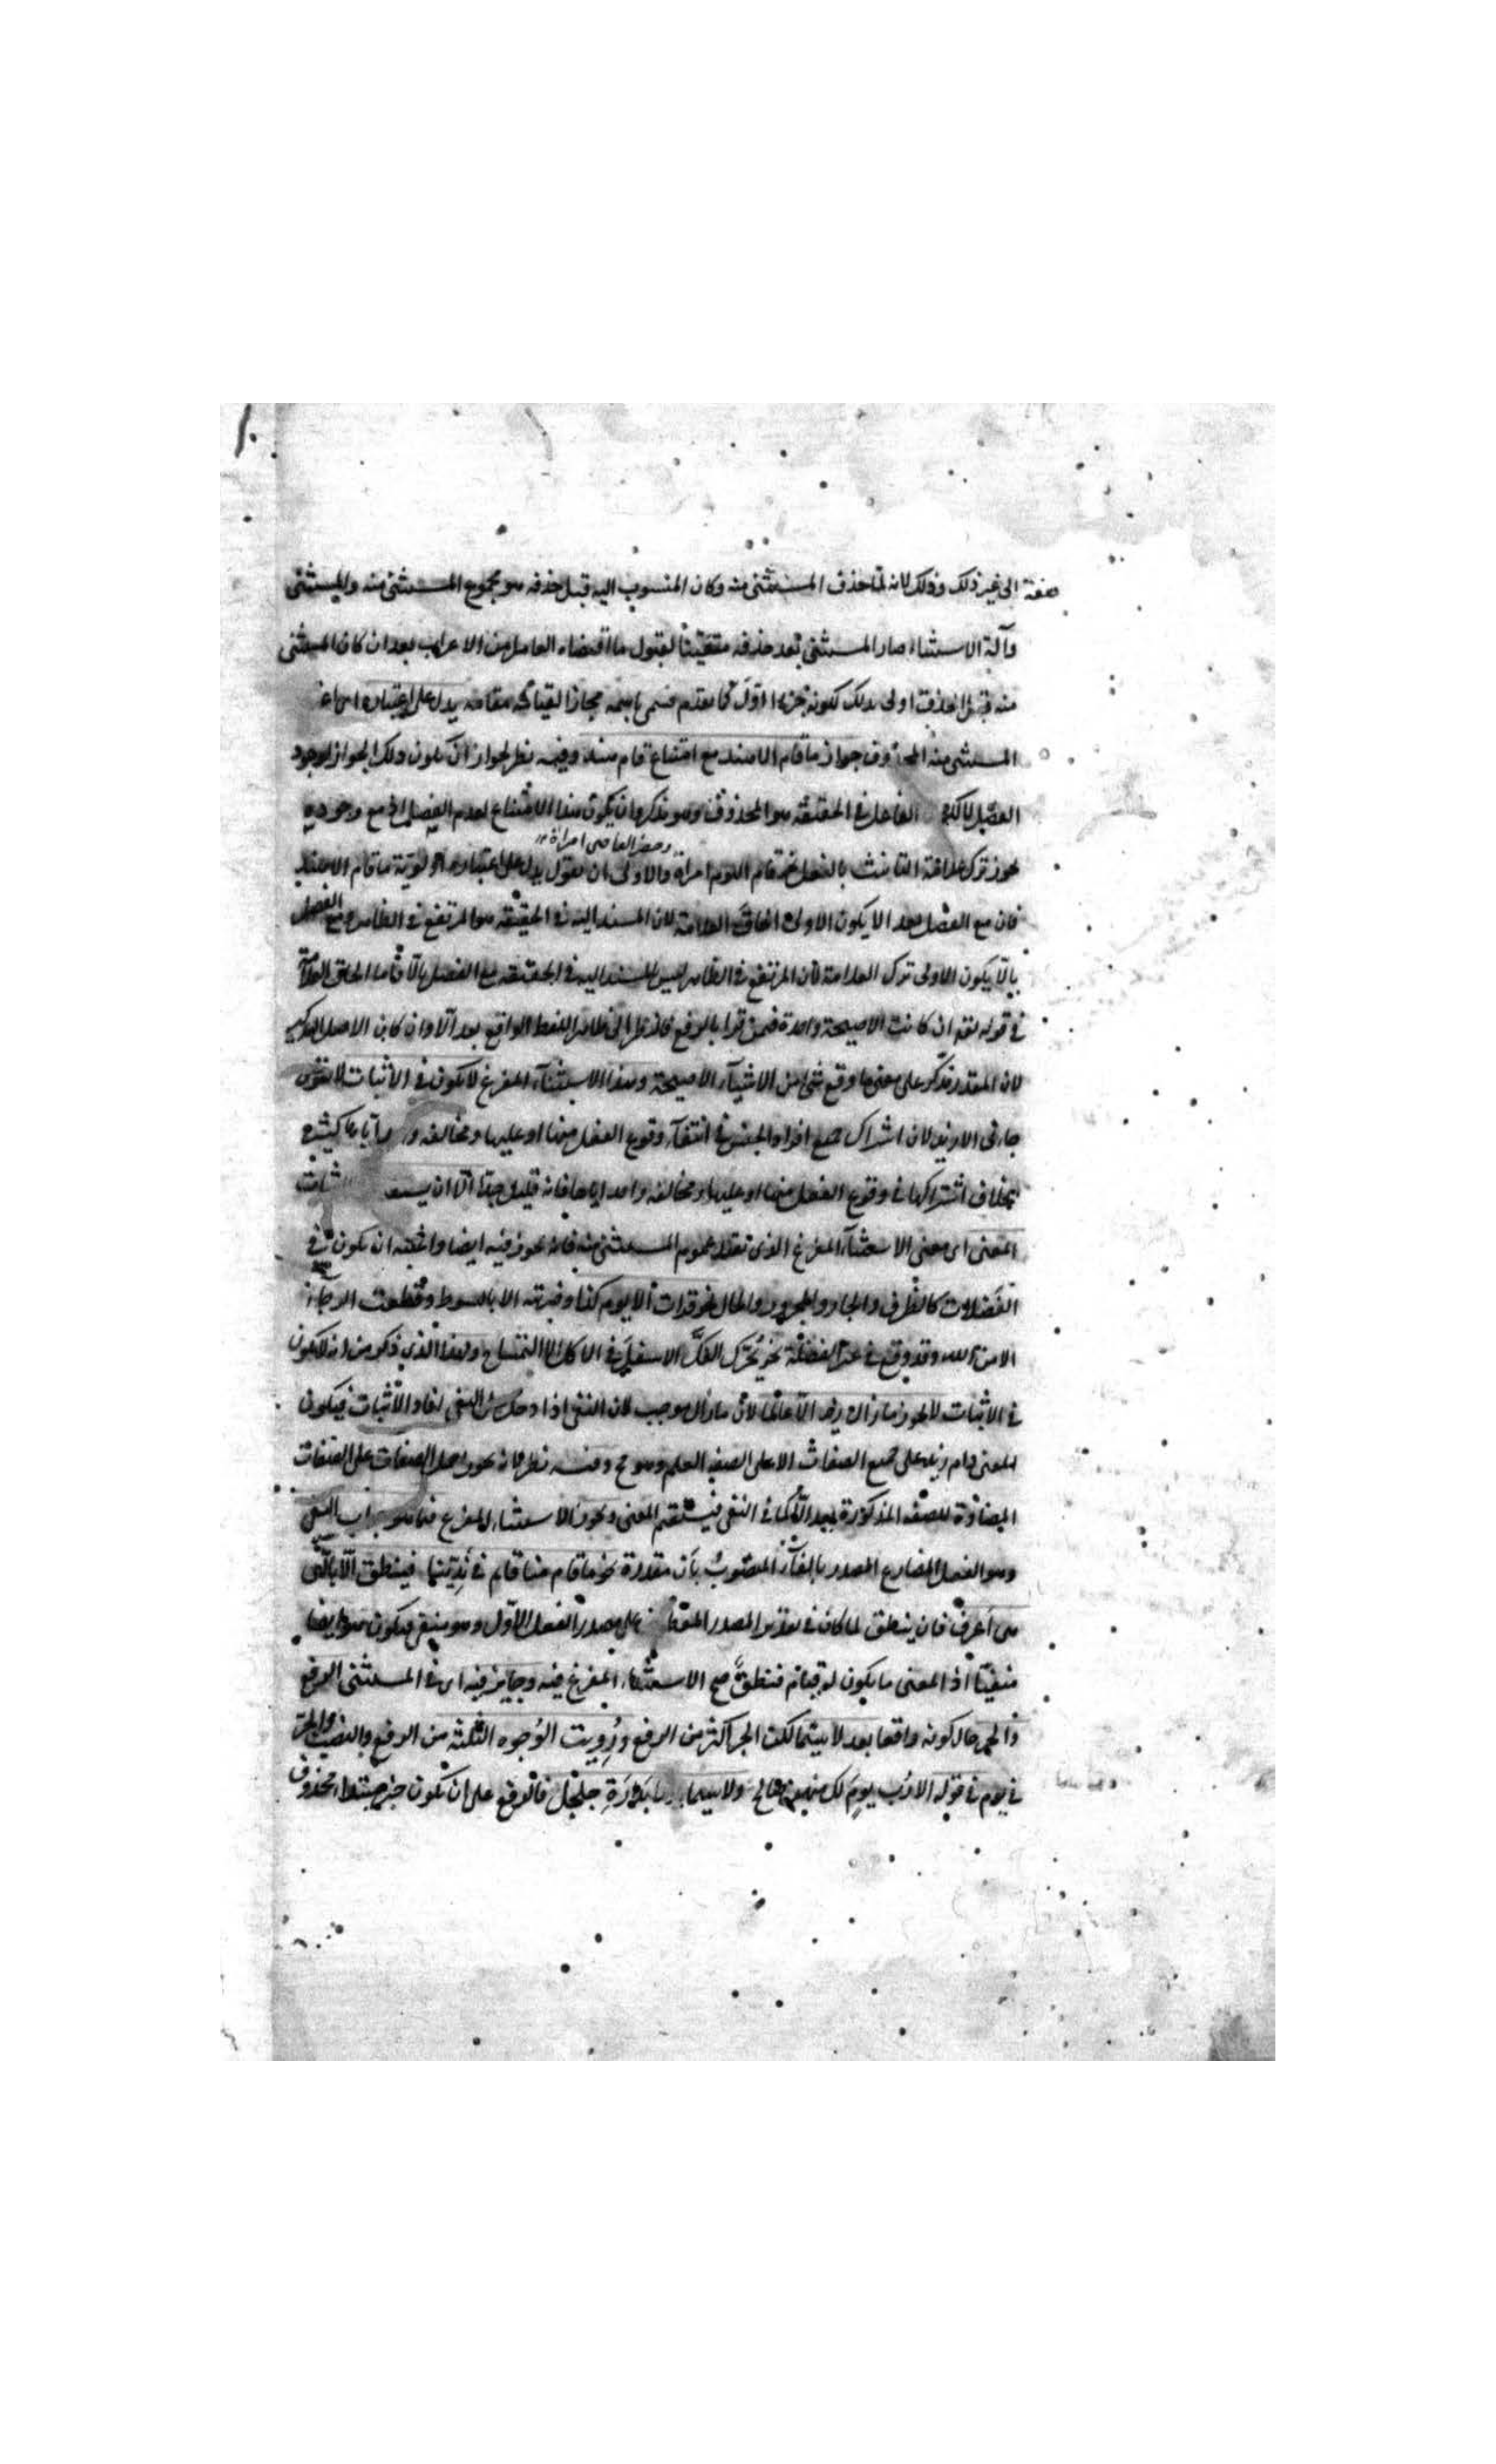 صفة الى غير ذلك وذلك لانه لما حذف المستثنى منه وكان المنسوب اليه قبل حذفه هو مجموع المستثنى منه والمستثنى
وآلة الاستثناء صار المستثنى بعد حذفه متعينا لقبول ما اقتضاه العامل من الاعراب بعد ان كان المستثنى
منه قبل الحذف اولى بذلك لكونه جزءا اول كما تقدم فسمى باسمه مجازا لقيامه مقامه يدل على اعتباره اى
المستثنى منه المحذوف جواز ما قام الا هند مع امتناع قام هند وفيه نظر لجواز ان يكون ذلك الجواز لوجود
الفصل الفاعل فى الحقيقة هو المحذوف وهو مذكر وان يكون هذا الامتناع لعدم الفصل اذ مع وجوده
يجوز ترك علامة التانيث بالفعل نحو قام اليوم امراة والاولى ان يقول يدل على اعتباره اولوية ما قام الا هند
وحضر القاضى امراة
فان مع الفصل بغير الا يكون الاولى الحاق العلامة لان المسند اليه فى الحقيقة هو المرتفع فى الظاهر ومع الفصل
بالا يكون الاولى ترك العلامة لان المرتفع فى الظاهر ليس المسند اليه فى الحقيقة مع الفصل بالا فاما الحاق العلامة
فى قوله ان كانت الا صيحة واحدة فمن قرا بالرفع فلنظر الى ظاهر اللفظ الواقع بعد الا وان كان الاصل التذكير
لان المقدر مذكر على معنى ما وقع شئ من الاشياء الا صيحة وهذا الاستثناء المفرغ لا يكون فى الاثبات لا تقول
جاءنى الا زيد لان اشتراك جميع افراد الجنس فى انتفاء وقوع الفعل منها او عليها ومخالفة اياها كثير
بخلاف اشتراكها فى وقوع الفعل منها او عليها ومخالفة واحد اياها فانه قليل جدا الا ان
المعنى اى معنى الاستثناء المفرغ الذى تقدر عموم المستثنى منه فانه يجوز فيه ايضا واغلبه ان يكون فى
الفضلات كالظرف والجار والمجرور والحال نحو قرات الا يوم كذا وضربته الا بالسوط وقطعت الرجاء
الا من الله وقد وقع فى غير الفضلة نحو يحرك الفك الاسفل فى الاكل الا التمساح ولهذا الذى ذكر من انه لا يكون
فى الاثبات لا يجوز ما زال زيد الا عالما لان ما زال موجب لان النفى اذا دخل على النفى افاد الاثبات فيكون
المعنى دام زيد على جميع الصفات الا على الصفة العلم وهو مح وفيه نظر فانه يجوز حمل الصفات على الصفات
المضادة للصفة المذكورة بعد الا كما فى النفى فيستقيم المعنى ويجوز الاستثناء المفرغ فيما هو جواب النفى
وهو الفعل المضارع المصدر بالفاء المنصوب بان مقدرة نحو ما قام منا قائم فى ندينا فينطق الا بالتى
هى اعرف فان ينطق لما كان فى تقدير المصدر على مصدر الفعل الاول وهو منفى فيكون هو ايضا
منفيا اذ المعنى ما يكون له قيام فنطق صح الاستثناء المفرغ فيه وجايز فيه اى فى المستثنى الرفع
والجر حال كونه واقعا بعد لا سيما لكن الجر اكثر من الرفع ورويت الوجوه الثلثة من الرفع والنصب والجر
فى يوم فى قوله الا رب يوم لك منهن صالح ولا سيما بدارة جلجل فالرفع على ان يكون خبر مبتدا محذوف